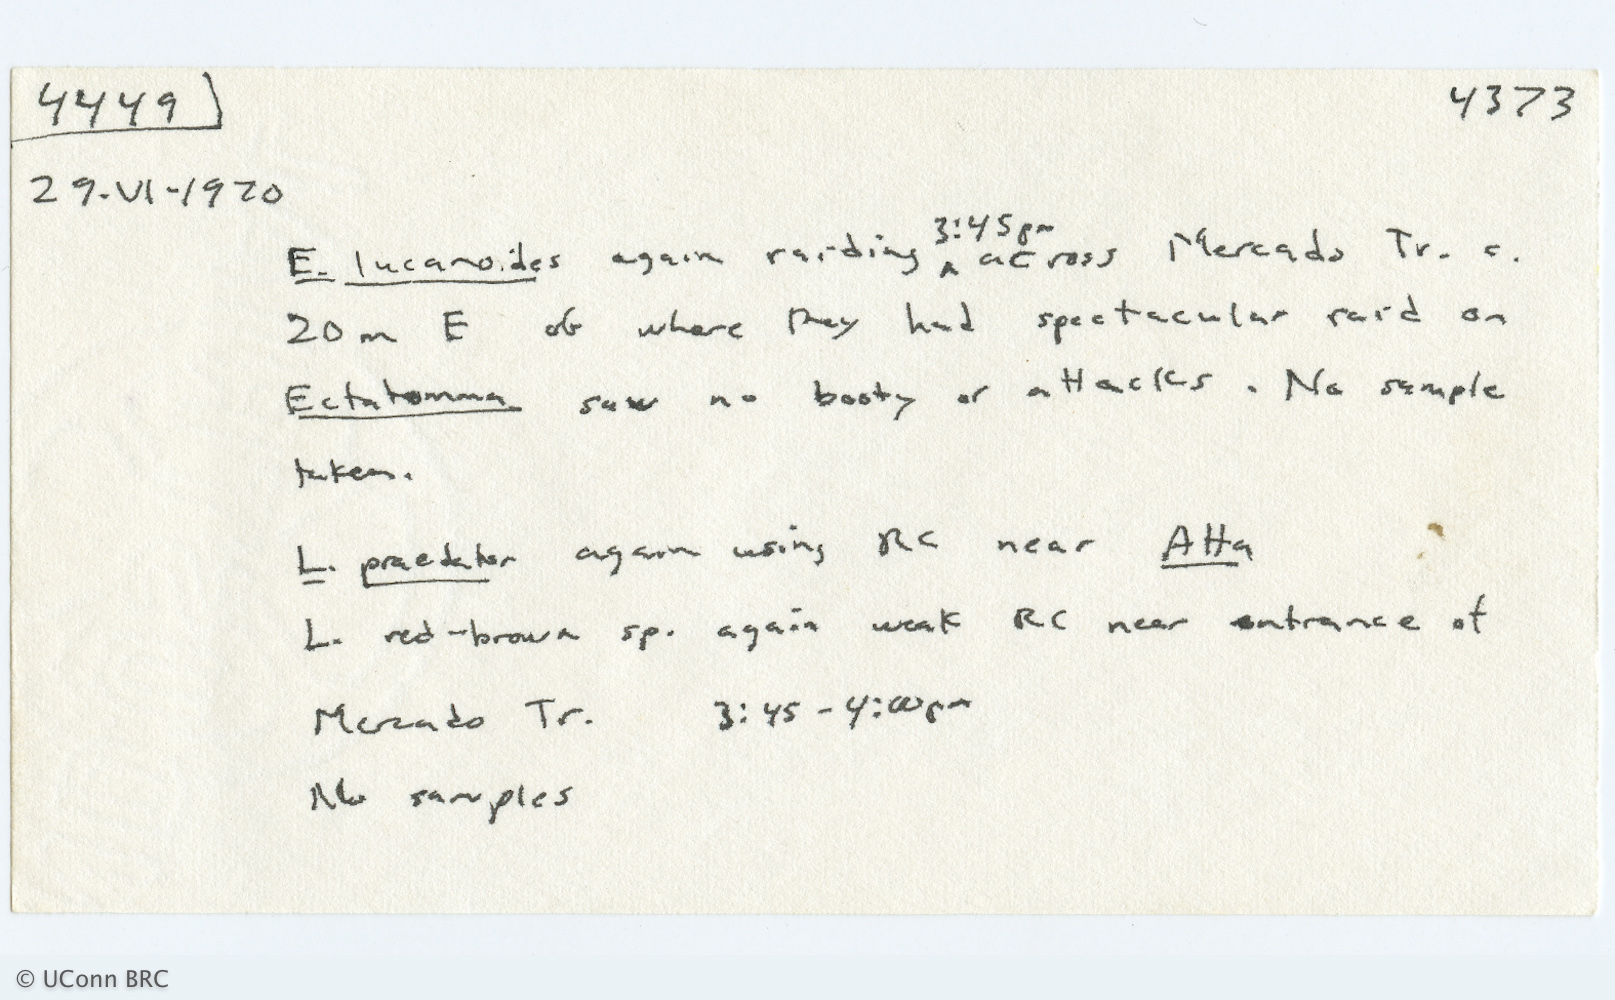 4449
4373
29-VI-1970
E. lucanoides again raiding ^ 3:45pm across Mercado Tr. c.
20m E of where they had spectacular raid on
Ectatomma saw no booty or attacks. No sample
taken.
L. praedator again using RC near Atta
L. red-brown sp. again weak RC near entrance of
Mercado Tr. 3:45-4:00pm
No samples
© UConn BRC